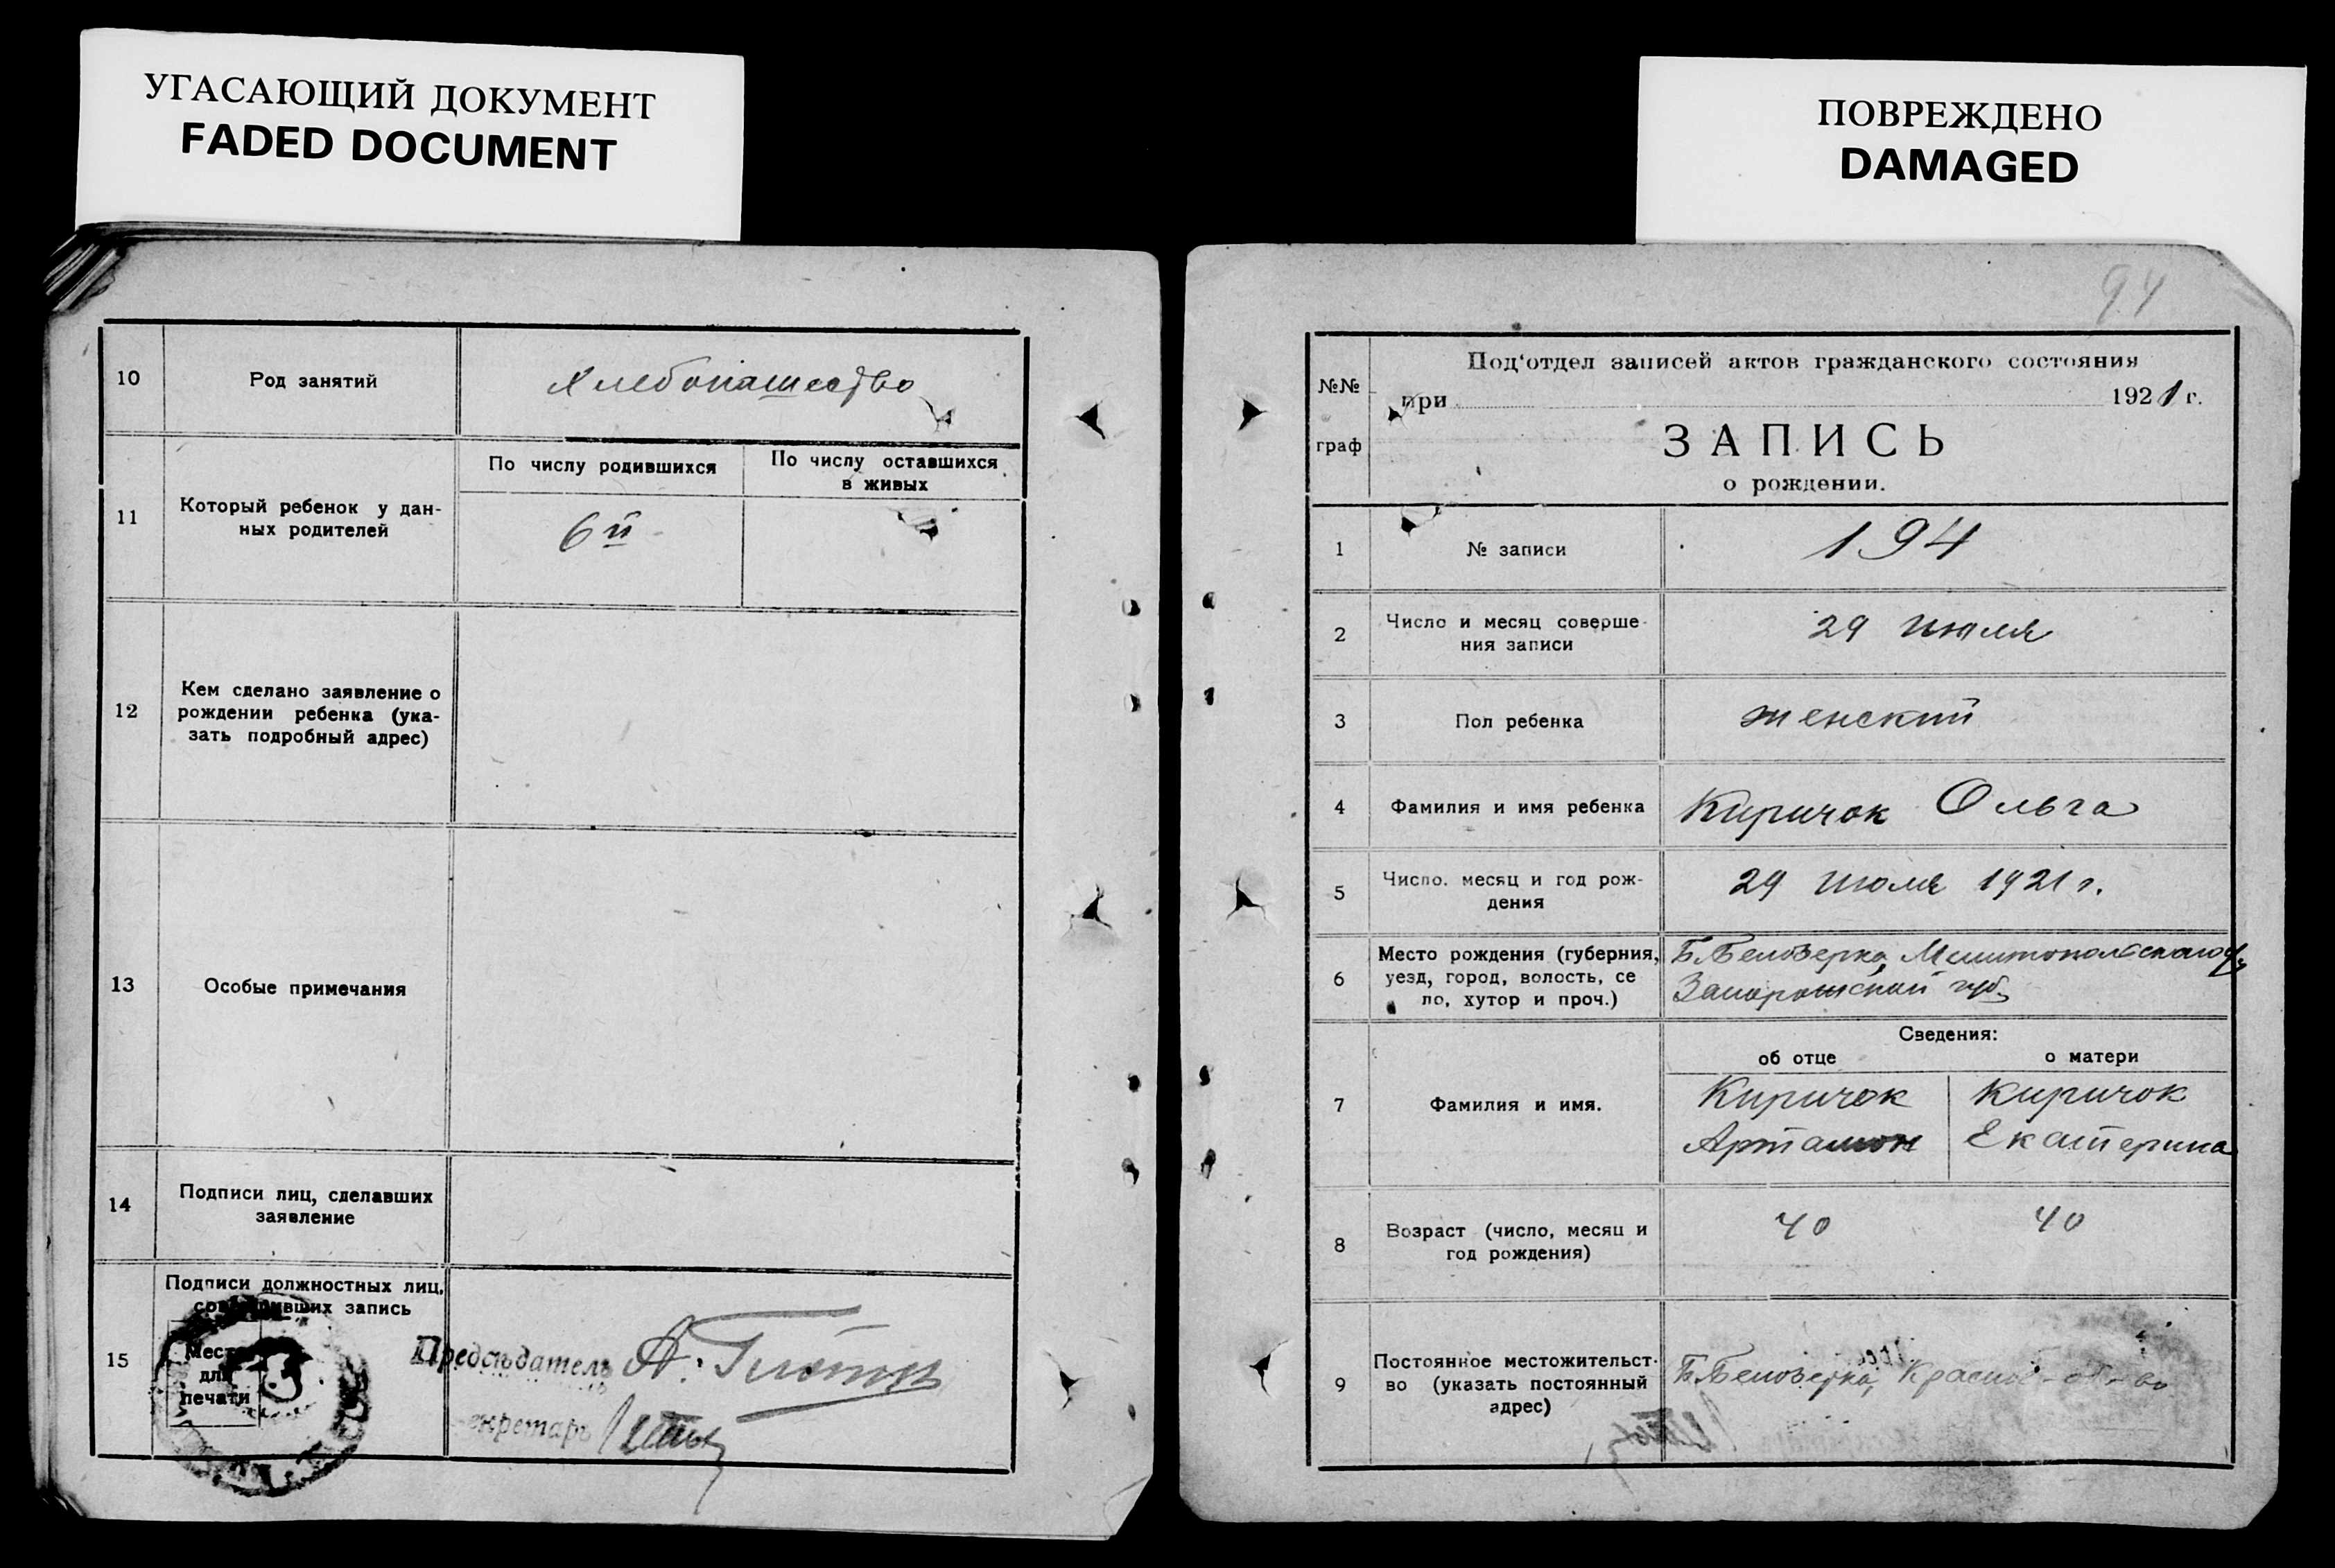 УГАСАЮЩИЙ ДОКУМЕНТ
FADED DOCUMENT
10
Род занятий
Хлебопашество
11
Который ребенок у дан-
ных родителей
По числу родившихся
По числу оставшихся
в живых
6й
12
Кем сделано заявление о
рождении ребенка (ука-
зать подробный адрес)
13
Особые примечания
14
Подписи лиц, сделавших
заявление
15
Подписи должностных лиц,
совершивших запись
Место
для
печати
Председатель А.
Секретарь
ПОВРЕЖДЕНО
DAMAGED
94
№№
граф
Под'отдел записей актов гражданского состояния
при 1921 г.
ЗАПИСЬ
о рождении.
1
№ записи
194
2
Число и месяц соверше-
ния записи
29 июля
3
Пол ребенка
женский
4
Фамилия и имя ребенка
Киричок Ольга
5
Число, месяц и год рож-
дения
29 июля 1921 г.
6
Место рождения (губерния,
уезд, город, волость, се
ло, хутор и проч.)
Б. Белозерка, Мелитопольского у.
Запорожской губ.
Сведения:
об отце
о матери
7
Фамилия и имя.
Киричок
Артамон
Киричок
Екатерина
8
Возраст (число, месяц и
год рождения)
40
40
9
Постоянное местожительст-
во (указать постоянный
адрес)
Б. Белозерка,